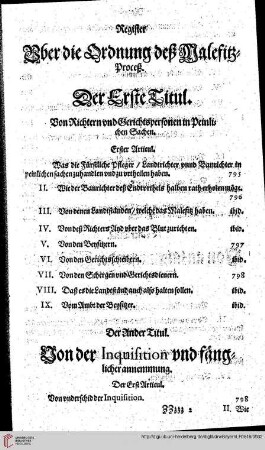 Register
Vber die Ordnung deß Malefitz-
Proceß.
Der Erste Titul.
Von Richtern vnd Gerichtspersonen in Peinli-
chen Sachen.
Erster Articul.
Was die Fürstliche Pfleger / Landtrichter vnnd Banrichter in
peinlichen sachen zuhandlen vnd zu vrtheilen haben. 795
II. Wie der Banrichter deß Endvrtheils halben rath erholen möge.
796
III. Von denen Landtständen / welche das Malefitz haben. ibid.
IV. Von deß Richters Ayd vber das Blut zurichten. ibid.
V. Von den Beysitzern. 797
VI. Von den Gerichtsschreibern. ibid.
VII. Von den Schergen vnd Gerichtsdienern. 798
VIII. Daß es die Landtständ auch also halten sollen. ibid.
IX. Vom Ambt der Beysitzer. ibid.
Der Ander Titul.
Von der Inquisition vnd fäng-
licher annemmung.
Der Erst Articul.
Von vnderschid der Inquisition. 798
II. Wie